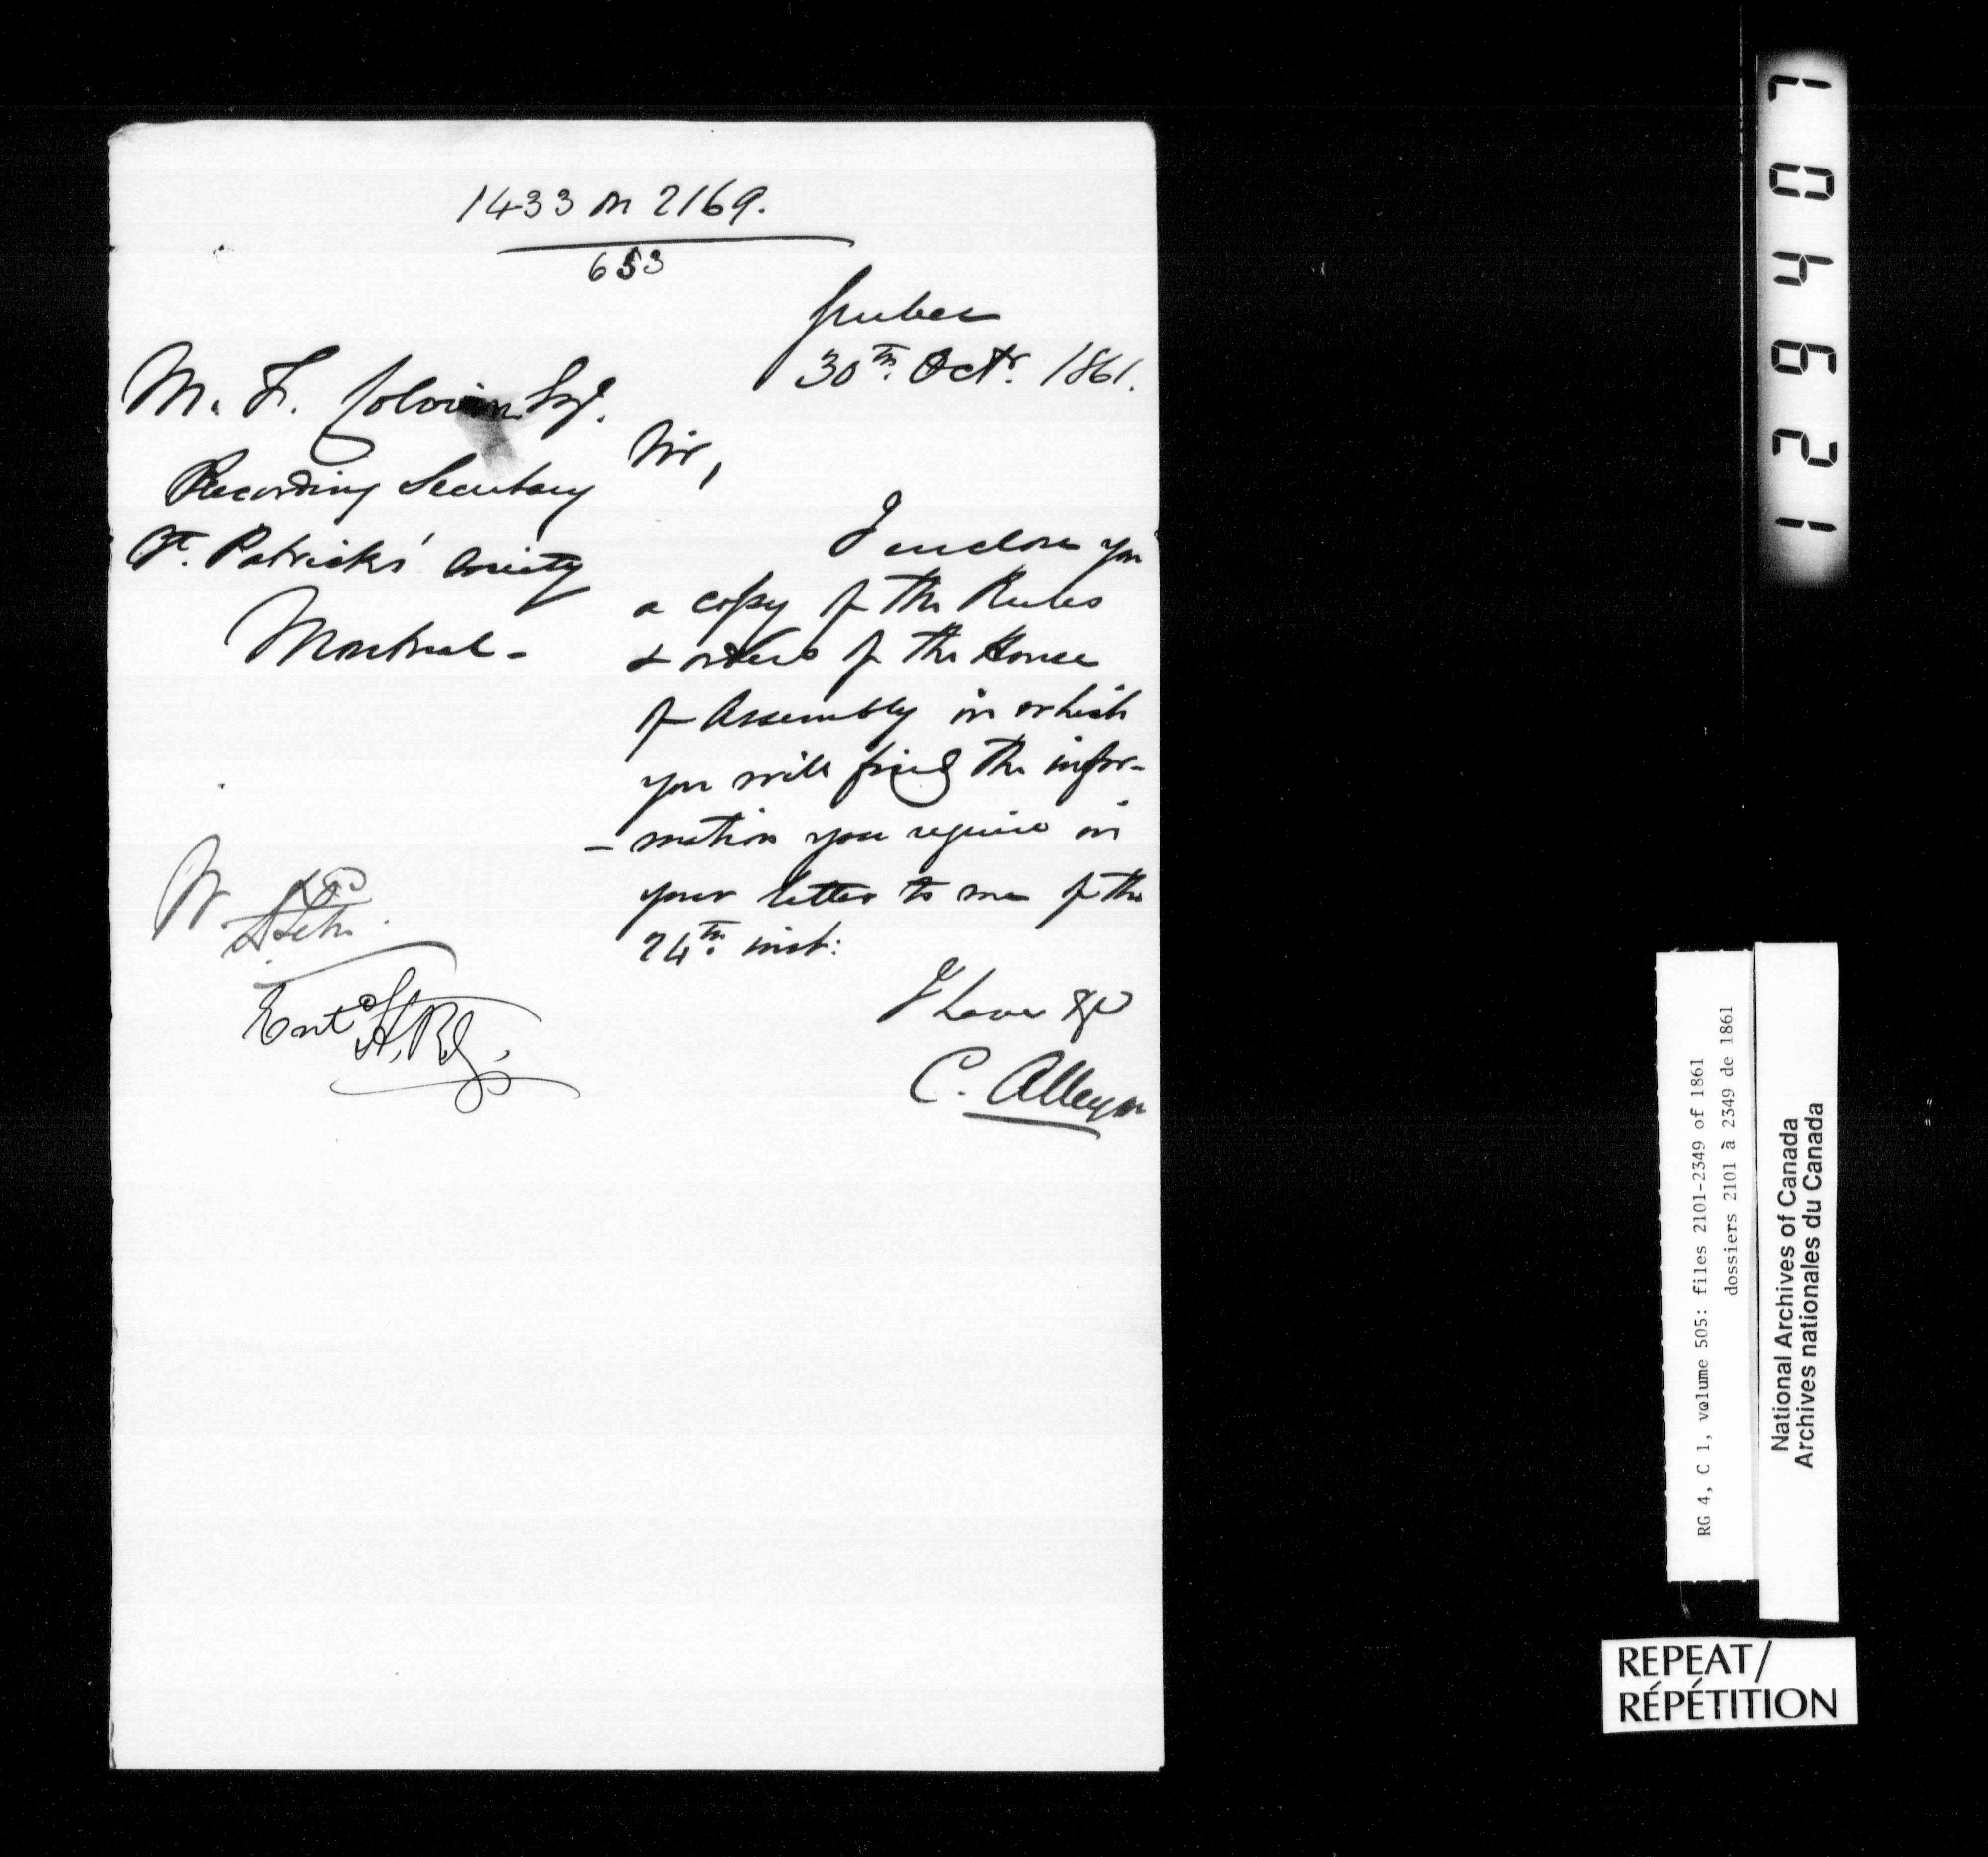 1433 on 2169.
653
Quebec
30th. Octr. 1861.
M. F. Colovin Esqr.
Recording Secretary
St. Patricks' Society
Montreal -
Sir,
I enclose you
a copy of the Rules
& orders of the House
of Assembly in which
you will find the infor-
- mation you require in
your letter to me of the
24th. inst:
I have &c
C. Alleyn
Entd
RG 4, C 1, volume 505: files 2101-2349 of 1861
dossiers 2101 à 2349 de 1861
National Archives of Canada
Archives nationales du Canada
REPEAT/
RÉPÉTITION